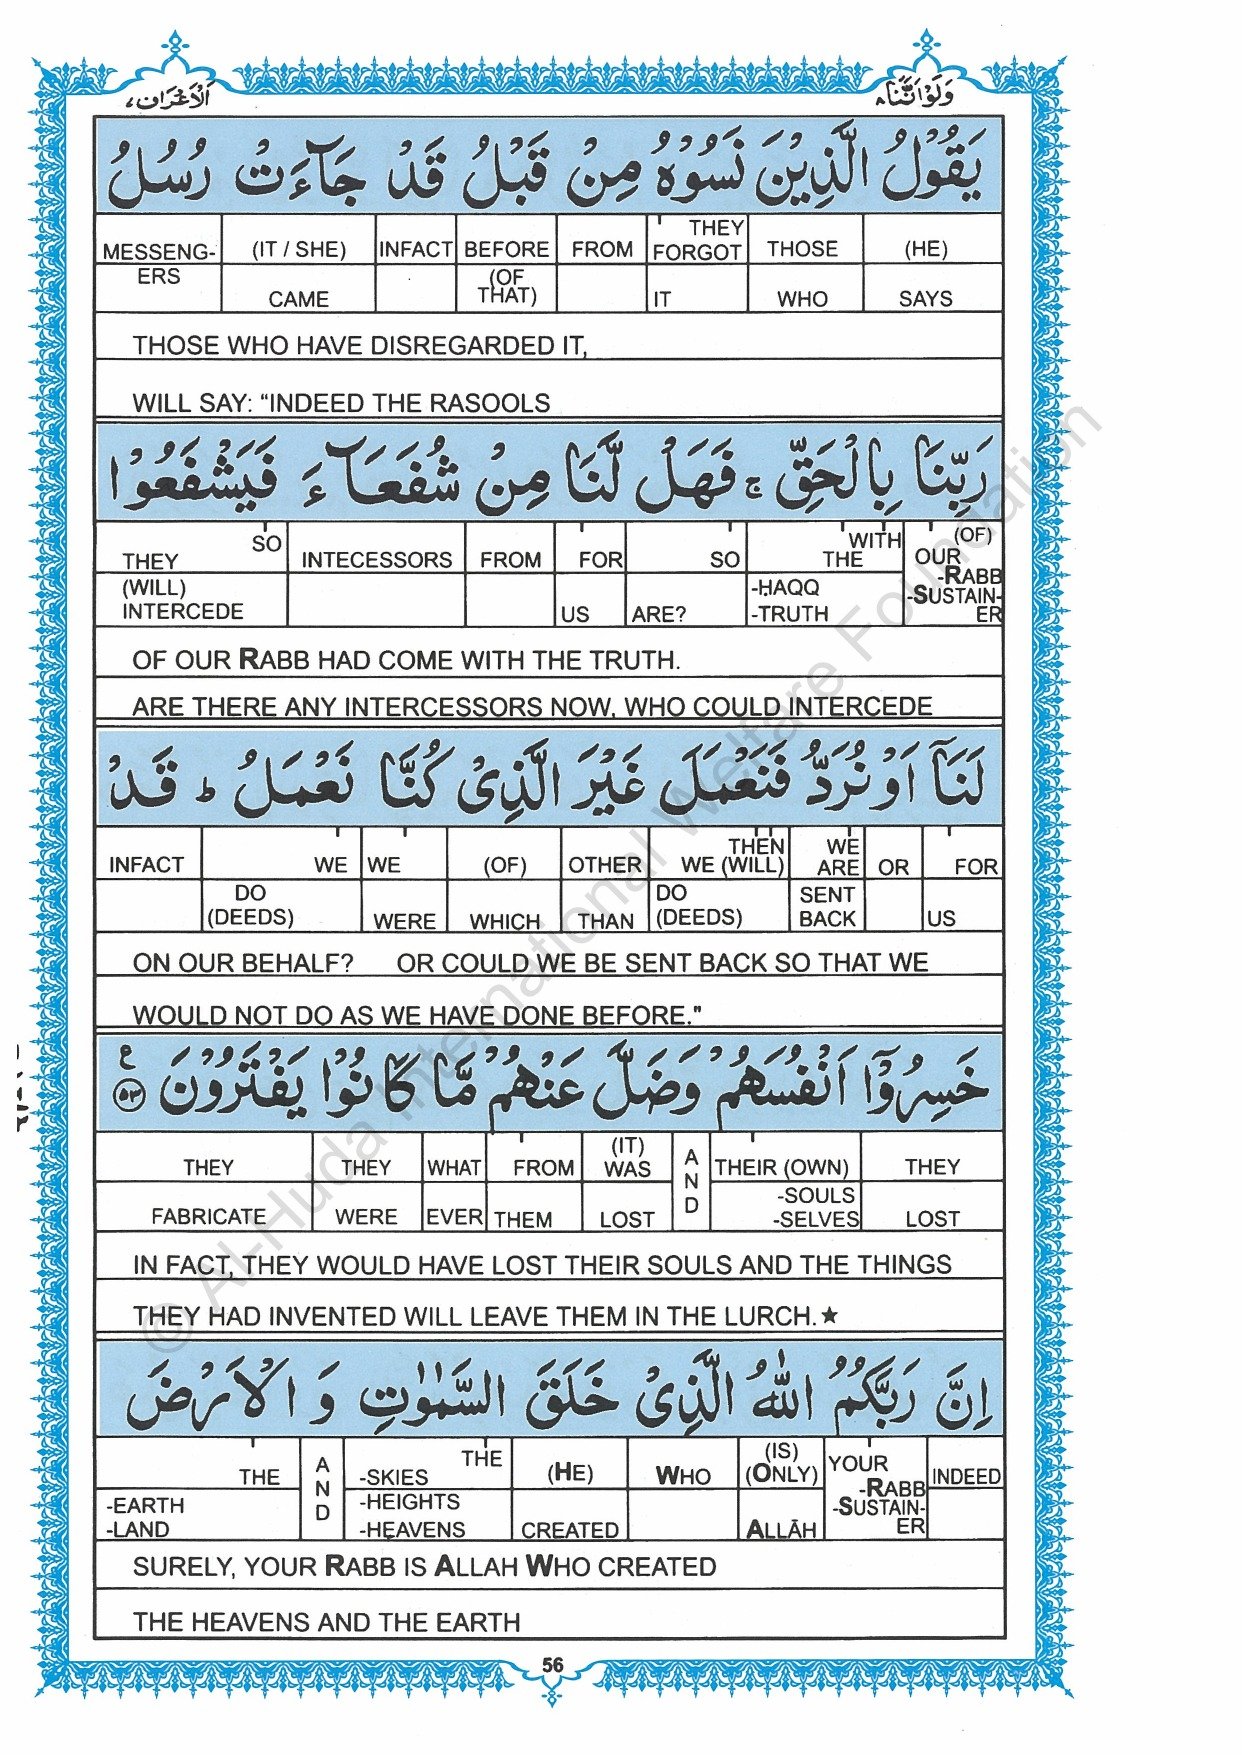 وَلَوْاَنَّنَا ۸
اَلْاَعْرَاف ۷
يَقُوْلُ الَّذِيْنَ نَسُوْهُ مِنْ قَبْلُ قَدْ جَآءَتْ رُسُلُ
MESSENG- (IT / SHE) INFACT BEFORE FROM THEY FORGOT THOSE (HE)
ERS CAME (OF THAT) IT WHO SAYS
THOSE WHO HAVE DISREGARDED IT,
WILL SAY: “INDEED THE RASOOLS
رَبِّنَا بِالْحَقِّ ۚ فَهَلْ لَّنَا مِنْ شُفَعَآءَ فَيَشْفَعُوْا
SO THEY INTECESSORS FROM FOR SO WITH THE (OF) OUR
(WILL) INTERCEDE US ARE? -ḤAQQ -TRUTH -RABB -SUSTAIN-ER
OF OUR RABB HAD COME WITH THE TRUTH.
ARE THERE ANY INTERCESSORS NOW, WHO COULD INTERCEDE
لَنَآ اَوْ نُرَدُّ فَنَعْمَلَ غَيْرَ الَّذِيْ كُنَّا نَعْمَلُ ؕ قَدْ
INFACT WE WE (OF) OTHER THEN WE (WILL) WE ARE OR FOR
DO (DEEDS) WERE WHICH THAN DO (DEEDS) SENT BACK US
ON OUR BEHALF? OR COULD WE BE SENT BACK SO THAT WE
WOULD NOT DO AS WE HAVE DONE BEFORE."
خَسِرُوْٓا اَنْفُسَهُمْ وَضَلَّ عَنْهُمْ مَّا كَانُوْا يَفْتَرُوْنَ ع ۵۳
THEY THEY WHAT FROM (IT) WAS AND THEIR (OWN) THEY
FABRICATE WERE EVER THEM LOST -SOULS -SELVES LOST
IN FACT, THEY WOULD HAVE LOST THEIR SOULS AND THE THINGS
THEY HAD INVENTED WILL LEAVE THEM IN THE LURCH.★
اِنَّ رَبَّكُمُ اللّٰهُ الَّذِيْ خَلَقَ السَّمٰوٰتِ وَ الْاَرْضَ
THE AND THE -SKIES (HE) WHO (IS) (ONLY) YOUR INDEED
-EARTH -LAND -HEIGHTS -HEAVENS CREATED ALLĀH -RABB -SUSTAIN-ER
SURELY, YOUR RABB IS ALLAH WHO CREATED
THE HEAVENS AND THE EARTH
56
© Al-Huda International Welfare Foundation